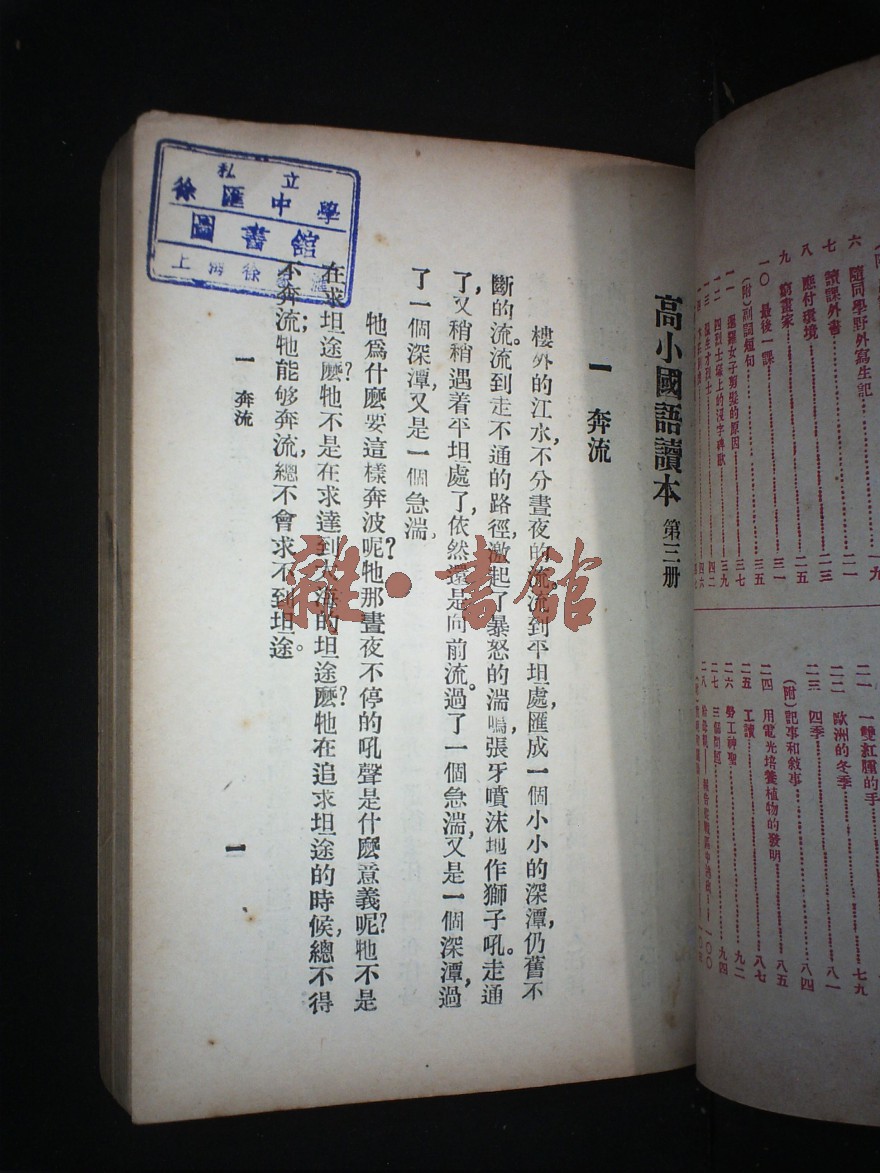 六 隨同學野外寫生記 二一
七 讀課外書 二三
八 應付環境 二五
九 窮畫家 三一
一〇 最後一課 三五
(附)副詞短句 三七
一一 暹羅女子剪髮的原因 三九
一二 四烈士塚上的沒字碑歌 四二
二一 一雙紅腫的手 七九
二二 歐洲的冬季 八一
二三 四季 八四
(附)記事和敘事 八五
二四 用電光培養植物的發明 八七
二五 工讀 九二
二六 勞工神聖 九四
二七 三個問題 一〇〇
高小國語讀本 第三册
一 奔流
樓外的江水,不分晝夜的流,流到平坦處,匯成一個小小的深潭,仍舊不
斷的流。流到走不通的路徑,激起了暴怒的湍鳴,張牙噴沫地作獅子吼。走通
了,又稍稍遇着平坦處了,依然還是向前流。過了一個急湍,又是一個深潭,過
了一個深潭,又是一個急湍,
牠爲什麽要這樣奔波呢?牠那晝夜不停的吼聲是什麽意義呢?牠不是
在求坦途麽?牠不是在求達到大海的坦途麽?牠在追求坦途的時候,總不得
不奔流;牠能够奔流,總不會求不到坦途。
一 奔流
一
私立
徐匯中學
圖書館
上海徐
雜·書館